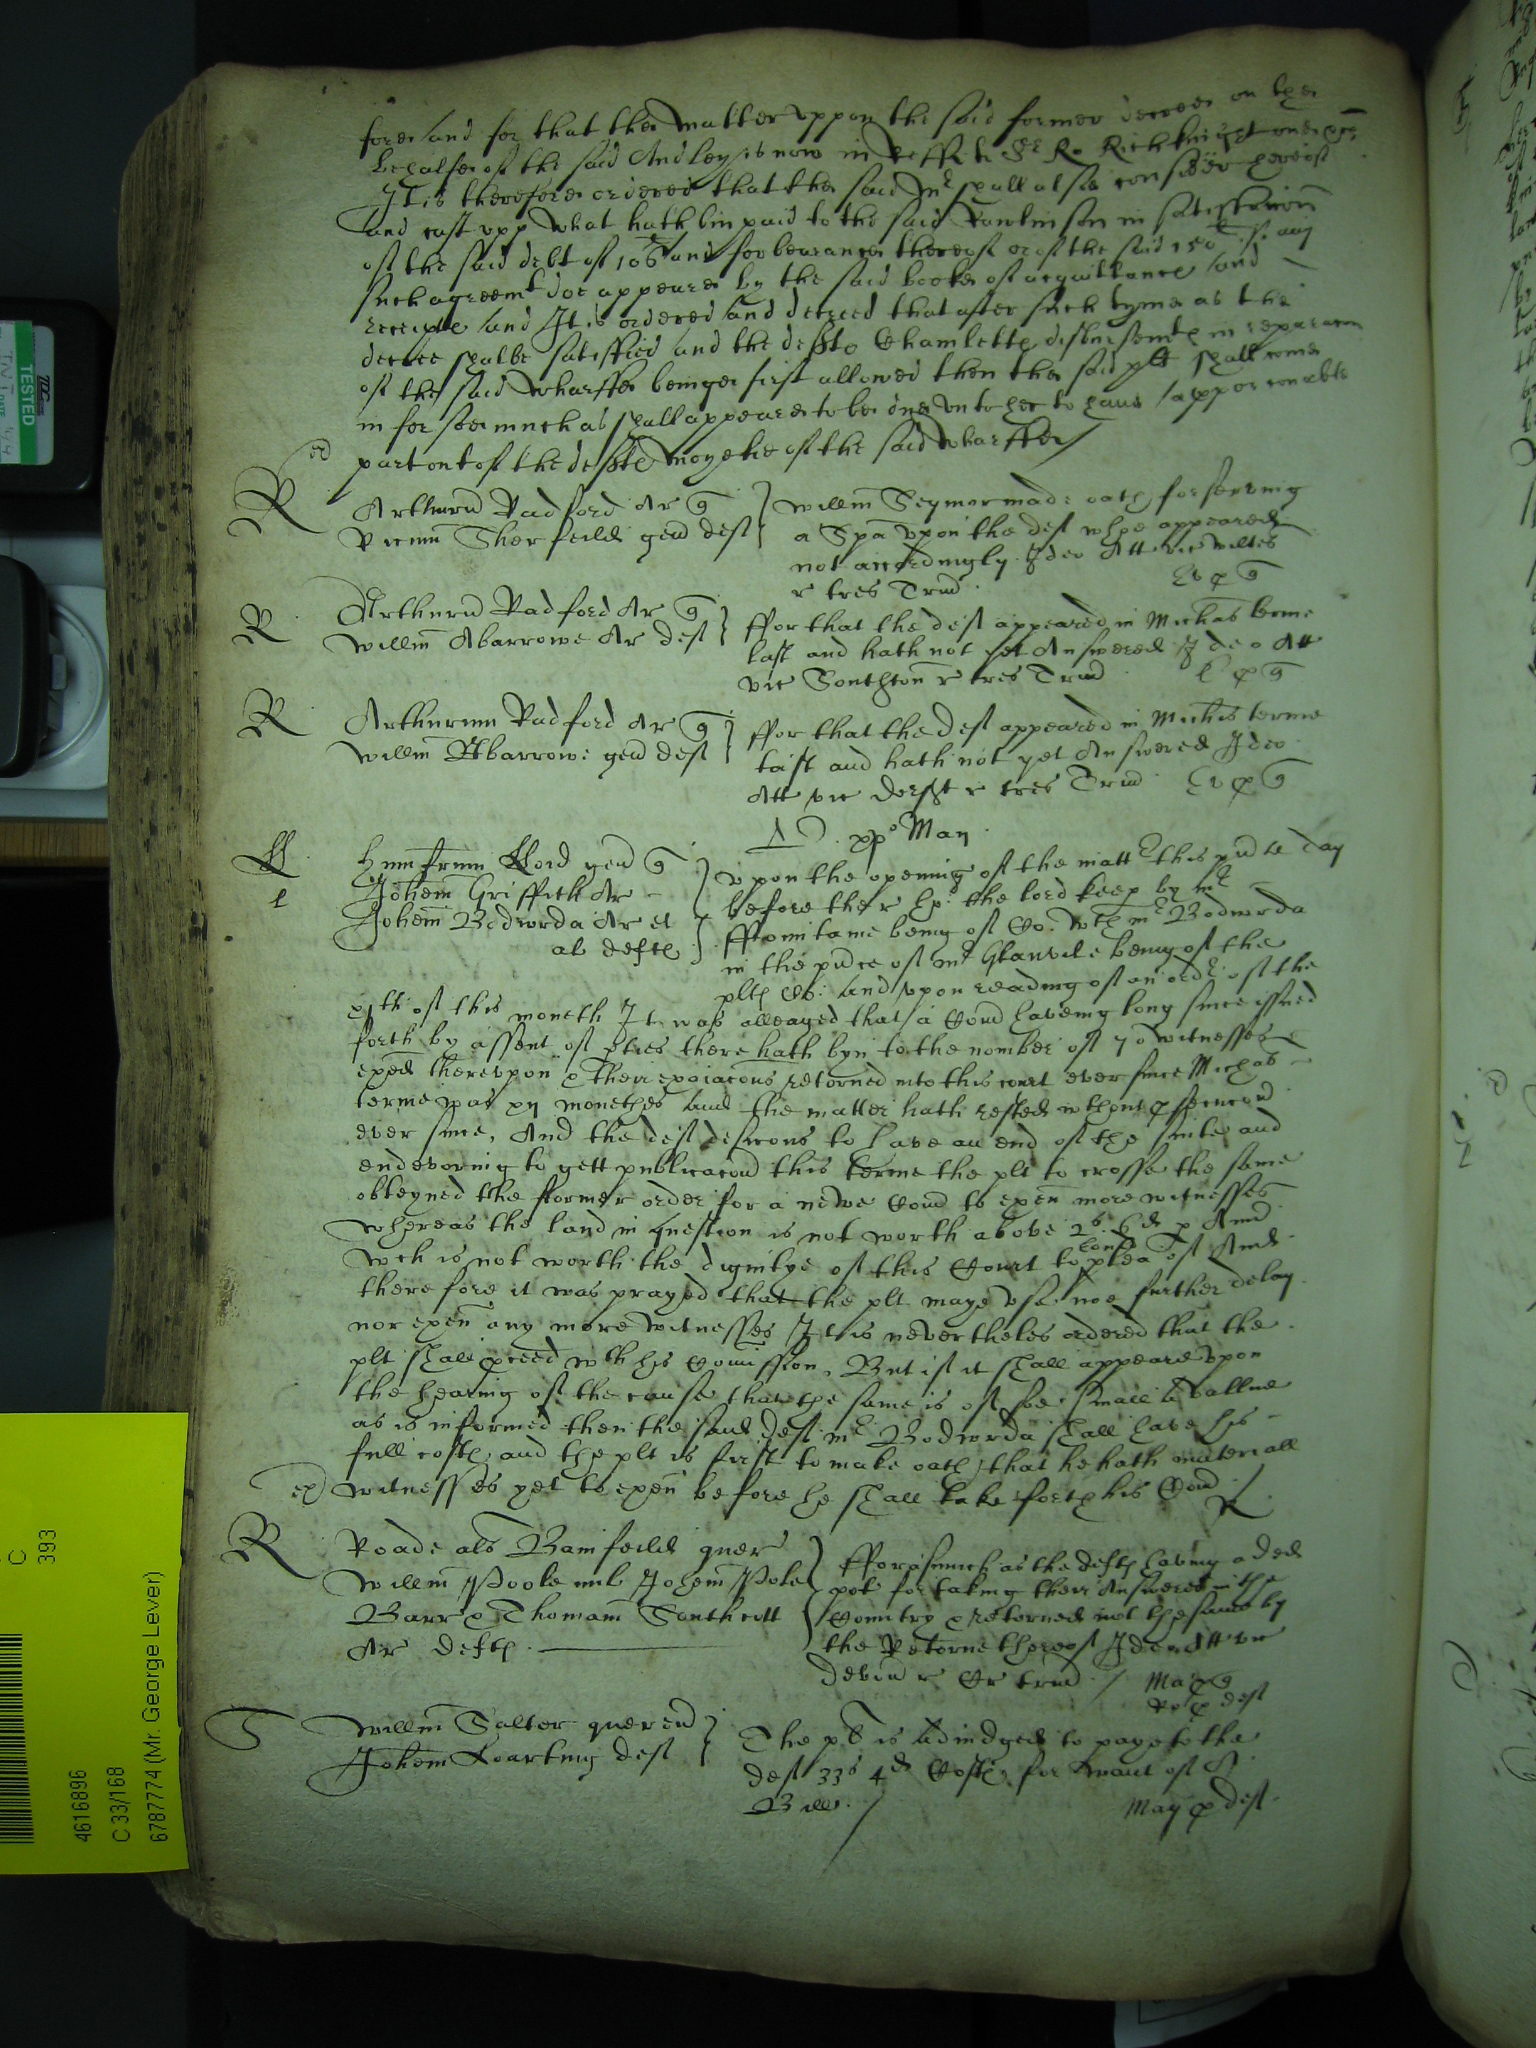 fore and for that the matter uppon the said former decree on the
behalfe of the said Andley is now in
It is therefore ordered that the said Mr shall alsoe consider thereof
and cast upp what hath bin paid to the said Rawlinson in satisfaccion
of the said debt of and forbearance thereof or of the said 150 if any
such agreemt doe appeare by the said bookes of acquittance and
receipte and It is ordered and decreed that after such tyme as the
decree shalbe satisfied and the deftes Chamlette disbursemte in reparacon
of the said wharffe beinge first allowed then the said plt shall come
in for soe much as shall appeare to be due unto her to have
part out of the deftes moyetie of the said wharffe
R
Arthurus Radford Ar q
Sherfeild gen deft
Willm Seymor made oath for serving
a Spa upon the deft whoe appeared
not accordingly Ideo Att vic wiltes
r tres Trin
R
Arthurus Radford Ar q
Willm Abarrowe Ar deft
ffor that the deft appeared in Michas terme
last and hath not yet Answered Ideo Att
vic Southton r tres Trin
R
Arthurum Radford Ar q
Willm Abarrow gen deft
ffor that the deft appeared in Michis terme
last and hath not yet Answered Ideo
Att vic Dorset r tres Trin
May
ffloid gen q
Johem Griffith Ar
Johem Bodwrda Ar et
al deftes
upon the opening of the mattr this pnte day
before the r ho: the lord keep by mr
ffountaine being of Co: wth mr Bodwrda
in the pnce of mr Glanvile being of the
pltes Co: and upon reading of an ordr of the
xjth of this moneth It was alleaged that a Comd haveing long since issued
forth by assent of pties there hath byn to the nomber of 70 witnesses
exed thereupon & their exaiacons retorned into this court ever since Michas
terme was xij monethes and the matter hath rested without pseucon
ever since, And the deft desirous to have an end of the suite and
endevoring to gett publicacon this terme the plt to crosse the same
obteyned the former order for a newe Comd to exen more witnesses
whereas the land in question is not worth above 2s 6d p Ann
wch is not worth the dignitye of this Court to hould plea of And
therefore it was prayed that the plt maye use noe further delay
nor exen any more witnesses It is nevertheles ordered that the
plt shall pceed wth his Comission, But if it shall appeare upon
the hearing of the cause that the same is of soe small a vallue
as is informed then the said deft mr Bodwrda shall have his
full costes and the plt is first to make oath that he hath materiall
witnesses yet to exen before he shall take forth his Comd
R
R
Roade als Bamfeild quer
Willm Poole mil Johem Poole
Barr & Thomam Southcott
Ar deftes
fforasmuch as the deftes having a ded
pot for taking their Answeres in the
Countrey & retorned not the same by
the Retorne thereof Ideo Att vic
Devon r Cr trin
Ma p q
Ro p deft
S
Willm Salter queren
Johem deft
The plt is adiudged to paye to the
deft 33s 4d Costes for want of A
Bill.
May p deft
TESTED
C
393
4616896
C 33/168
6787774 (Mr. George Lever)